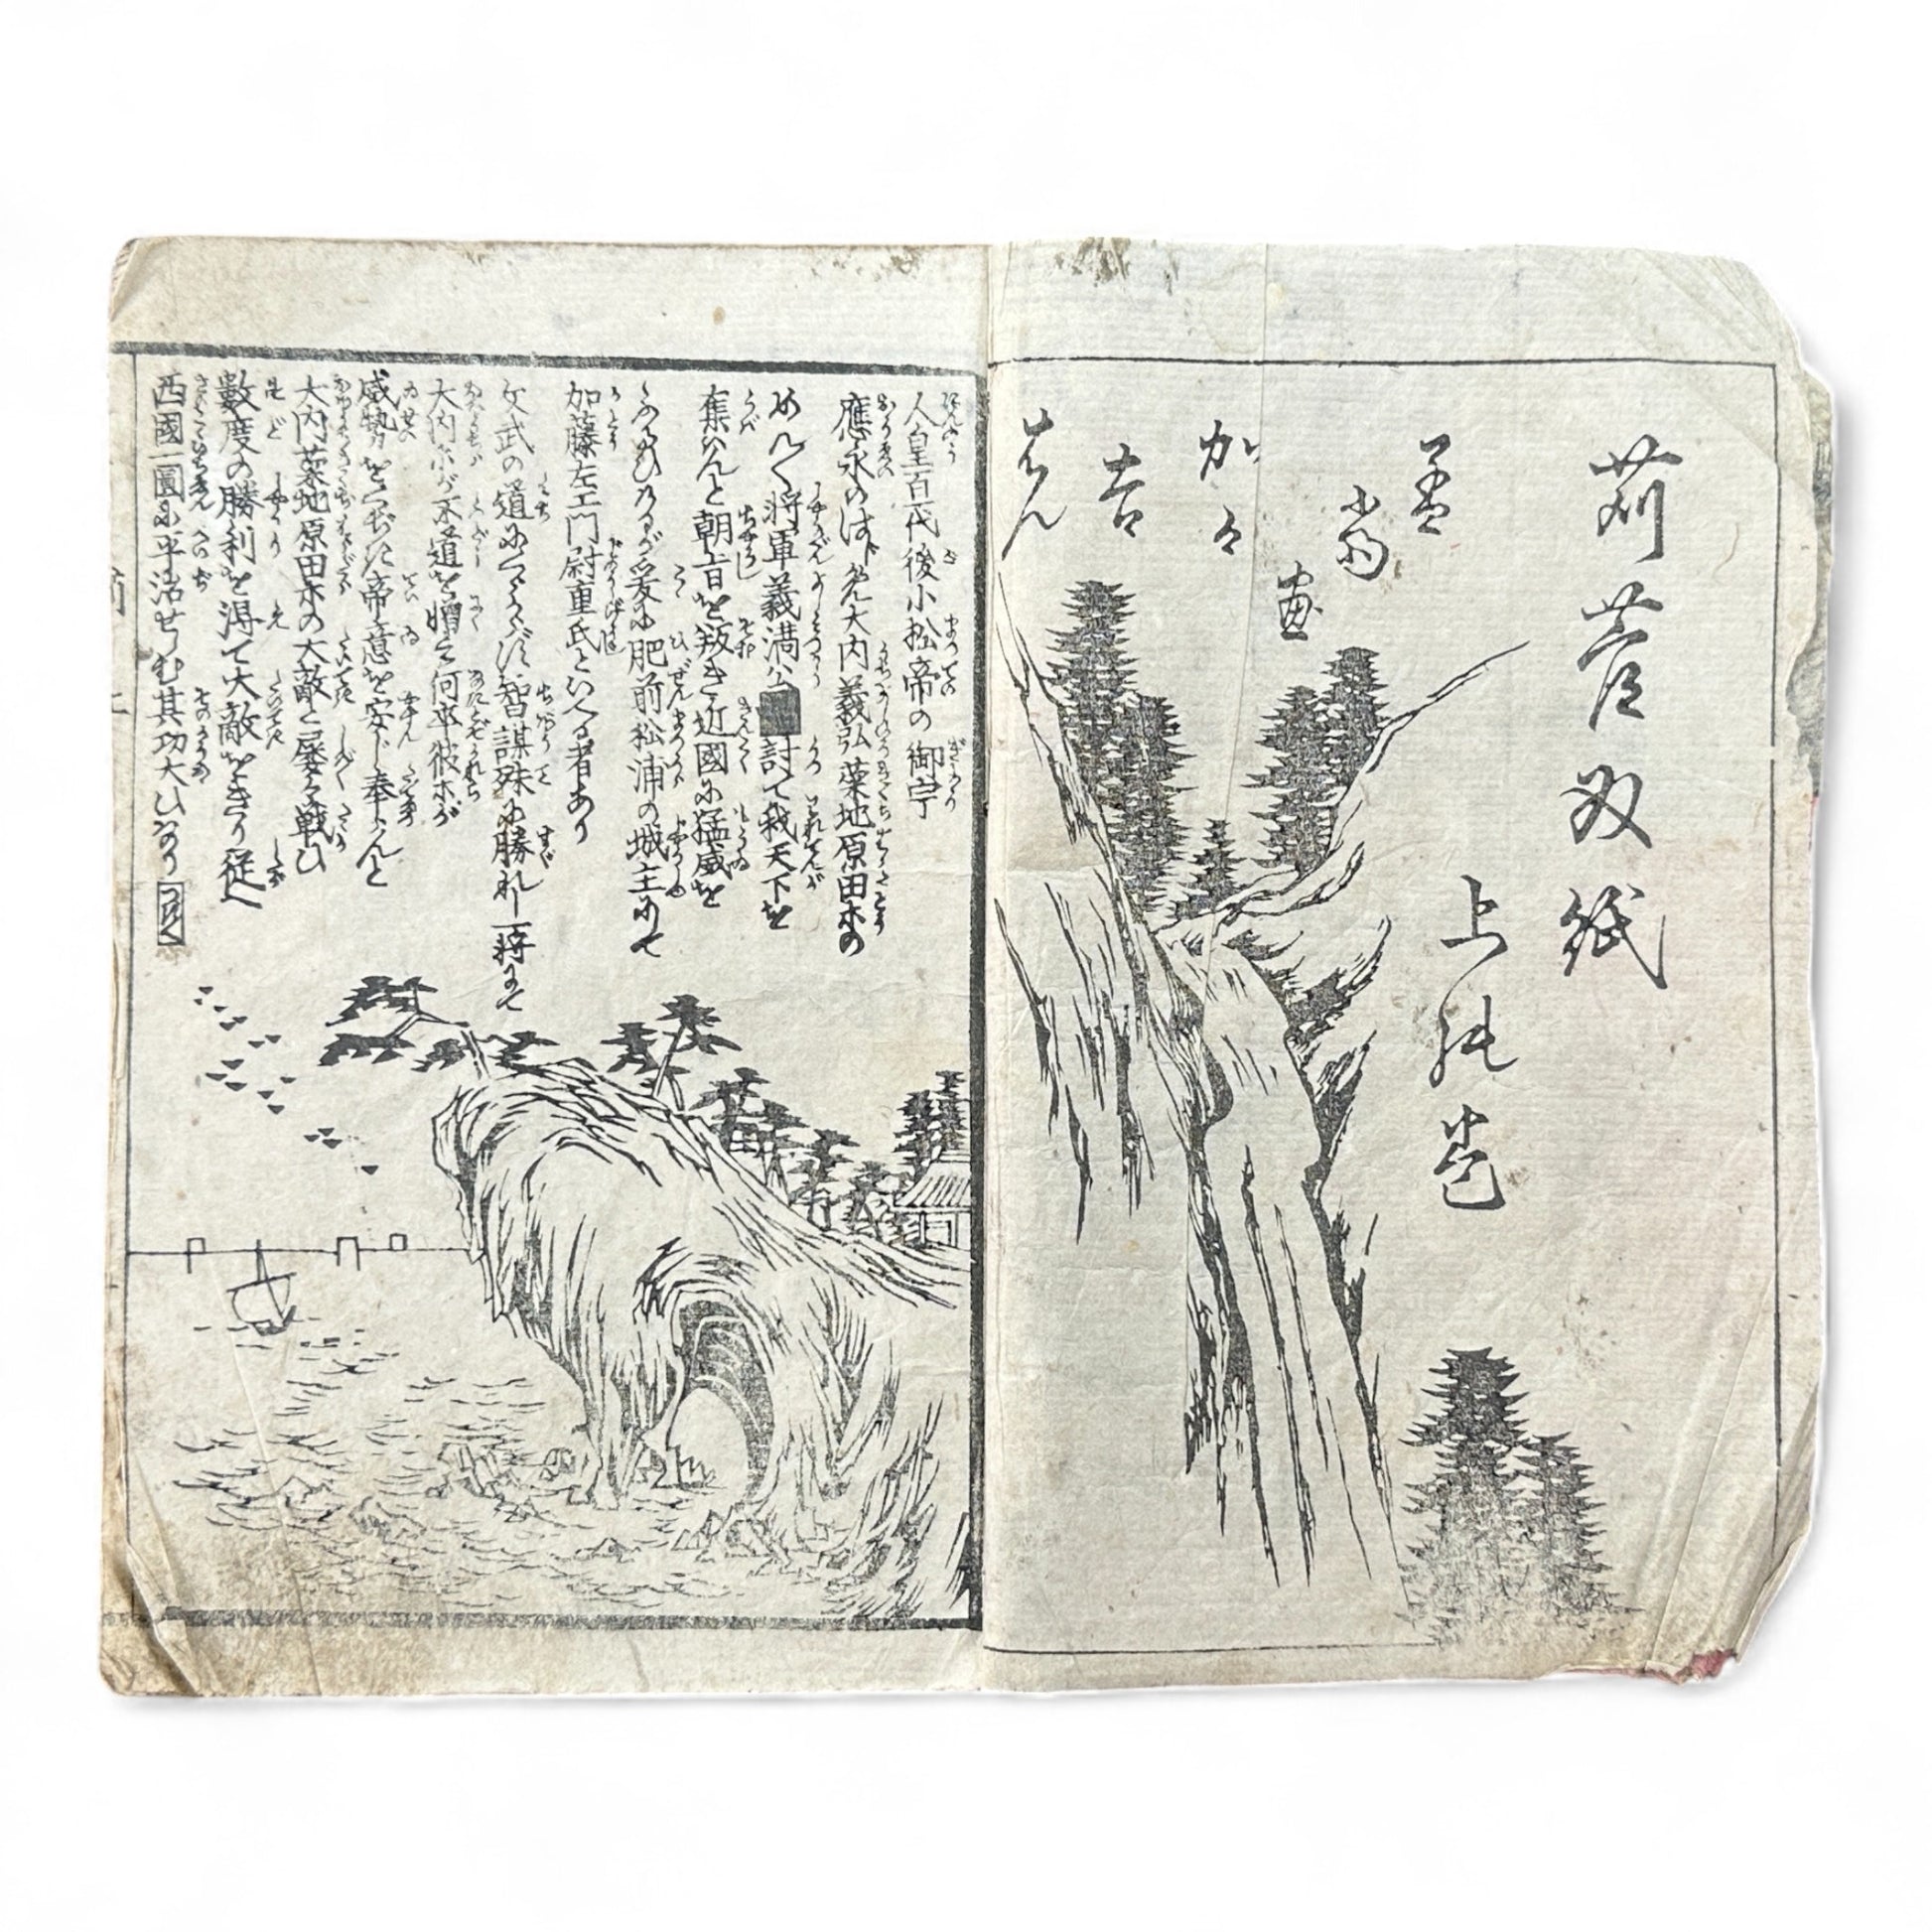 苅萱双紙
上の巻
孟斎
画
加々
吉
はん
人皇百一代後小松帝の御宇
應永のはじめ大内義弘菊地原田木の
めんく将軍義満公■討て我天下を
集はんと朝旨を叛き近國に猛威を
ふるひけるが爰に肥前松浦の城主にて
加藤左エ門尉重氏といへる者あり
文武の道にくらからず智謀殊に勝れし一将にて
大内木が不道を憎み何卒彼木が
威勢をくじき帝意を安じ奉らんと
大内菊地原田木の大敵と屡々戦ひ
數度の勝利を得て大敵をきり従へ
西國一圓に平治せしむ其功大ひなり